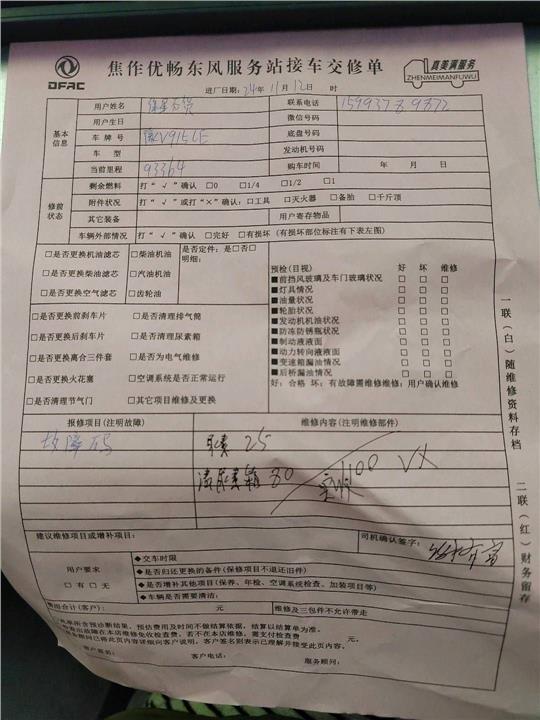 DFAC
焦作优畅东风服务站接车交修单
真美满服务
ZHENMEIMANFUWU
进厂日期：24年11月12日 时
基本信息
用户姓名
联系电话
用户生日
微信号码
车牌号
底盘号码
车型
发动机号码
当前里程 93364
购车时间 年 月 日
修前状态
剩余燃料 打“√”确认 □0 □1/4 □1/2 □1
附件状况 打“√”或打“×”确认：□工具 □灭火器 □备胎 □千斤顶
其它装备
用户寄存物品
车辆外部情况 打“√”确认 □完好 □有损坏（有损坏部位标注有下表左图）
□是否更换机油滤芯 □柴油机油 是否定件：是□否□
□是否更换柴油滤芯 □汽油机油 明细：
□是否更换空气滤芯 □齿轮油
□是否更换前刹车片 □是否清理排气筒
□是否更换后刹车片 □是否清理尿素箱
□是否更换离合三件套 □是否为电气维修
□是否更换火花塞 □空调系统是否正常运行
□是否清理节气门 □其它项目维修及更换
预检(目视) 好 坏 维修
■前挡风玻璃及车门玻璃状况 □ □ □
■灯具情况 □ □ □
■油量状况 □ □ □
■轮胎状况 □ □ □
■发动机机油状况 □ □ □
■防冻防锈瓶状况 □ □ □
■制动液液面 □ □ □
■动力转向液液面 □ □ □
■变速箱漏油情况 □ □ □
■后桥漏油情况 □ □ □
好：合格 坏：有故障需维修维修：用户确认维修
报修项目(注明故障)
维修内容(注明维修部件)
故障码
尿素 25
清尿素箱 80
实收100 VX
建议维修项目或增补项目：
司机确认签字：
用户要求
□有 □无
◆交车时限
◆是否归还更换的备件(保修项目不退还旧件)
◆是否增补其他项目(保养、年检、空调系统检查、加装项目等)
◆车辆是否需要清洁：
费用合计(客户)： 元 维修及三包件不允许带走
本单所含预诊断结果，预估费用及时间不做结算依据，结算以结算单为准。
检查出故障在本店维修免收检查费，若不在本店维修，需支付检查费 元。
服务顾问已将此页内容详细向客户说明，客户签名则表示已理解并接受此页内容。
客户签名： 客户电话： 服务顾问：
一联（白）随维修资料存档
二联（红）财务留存